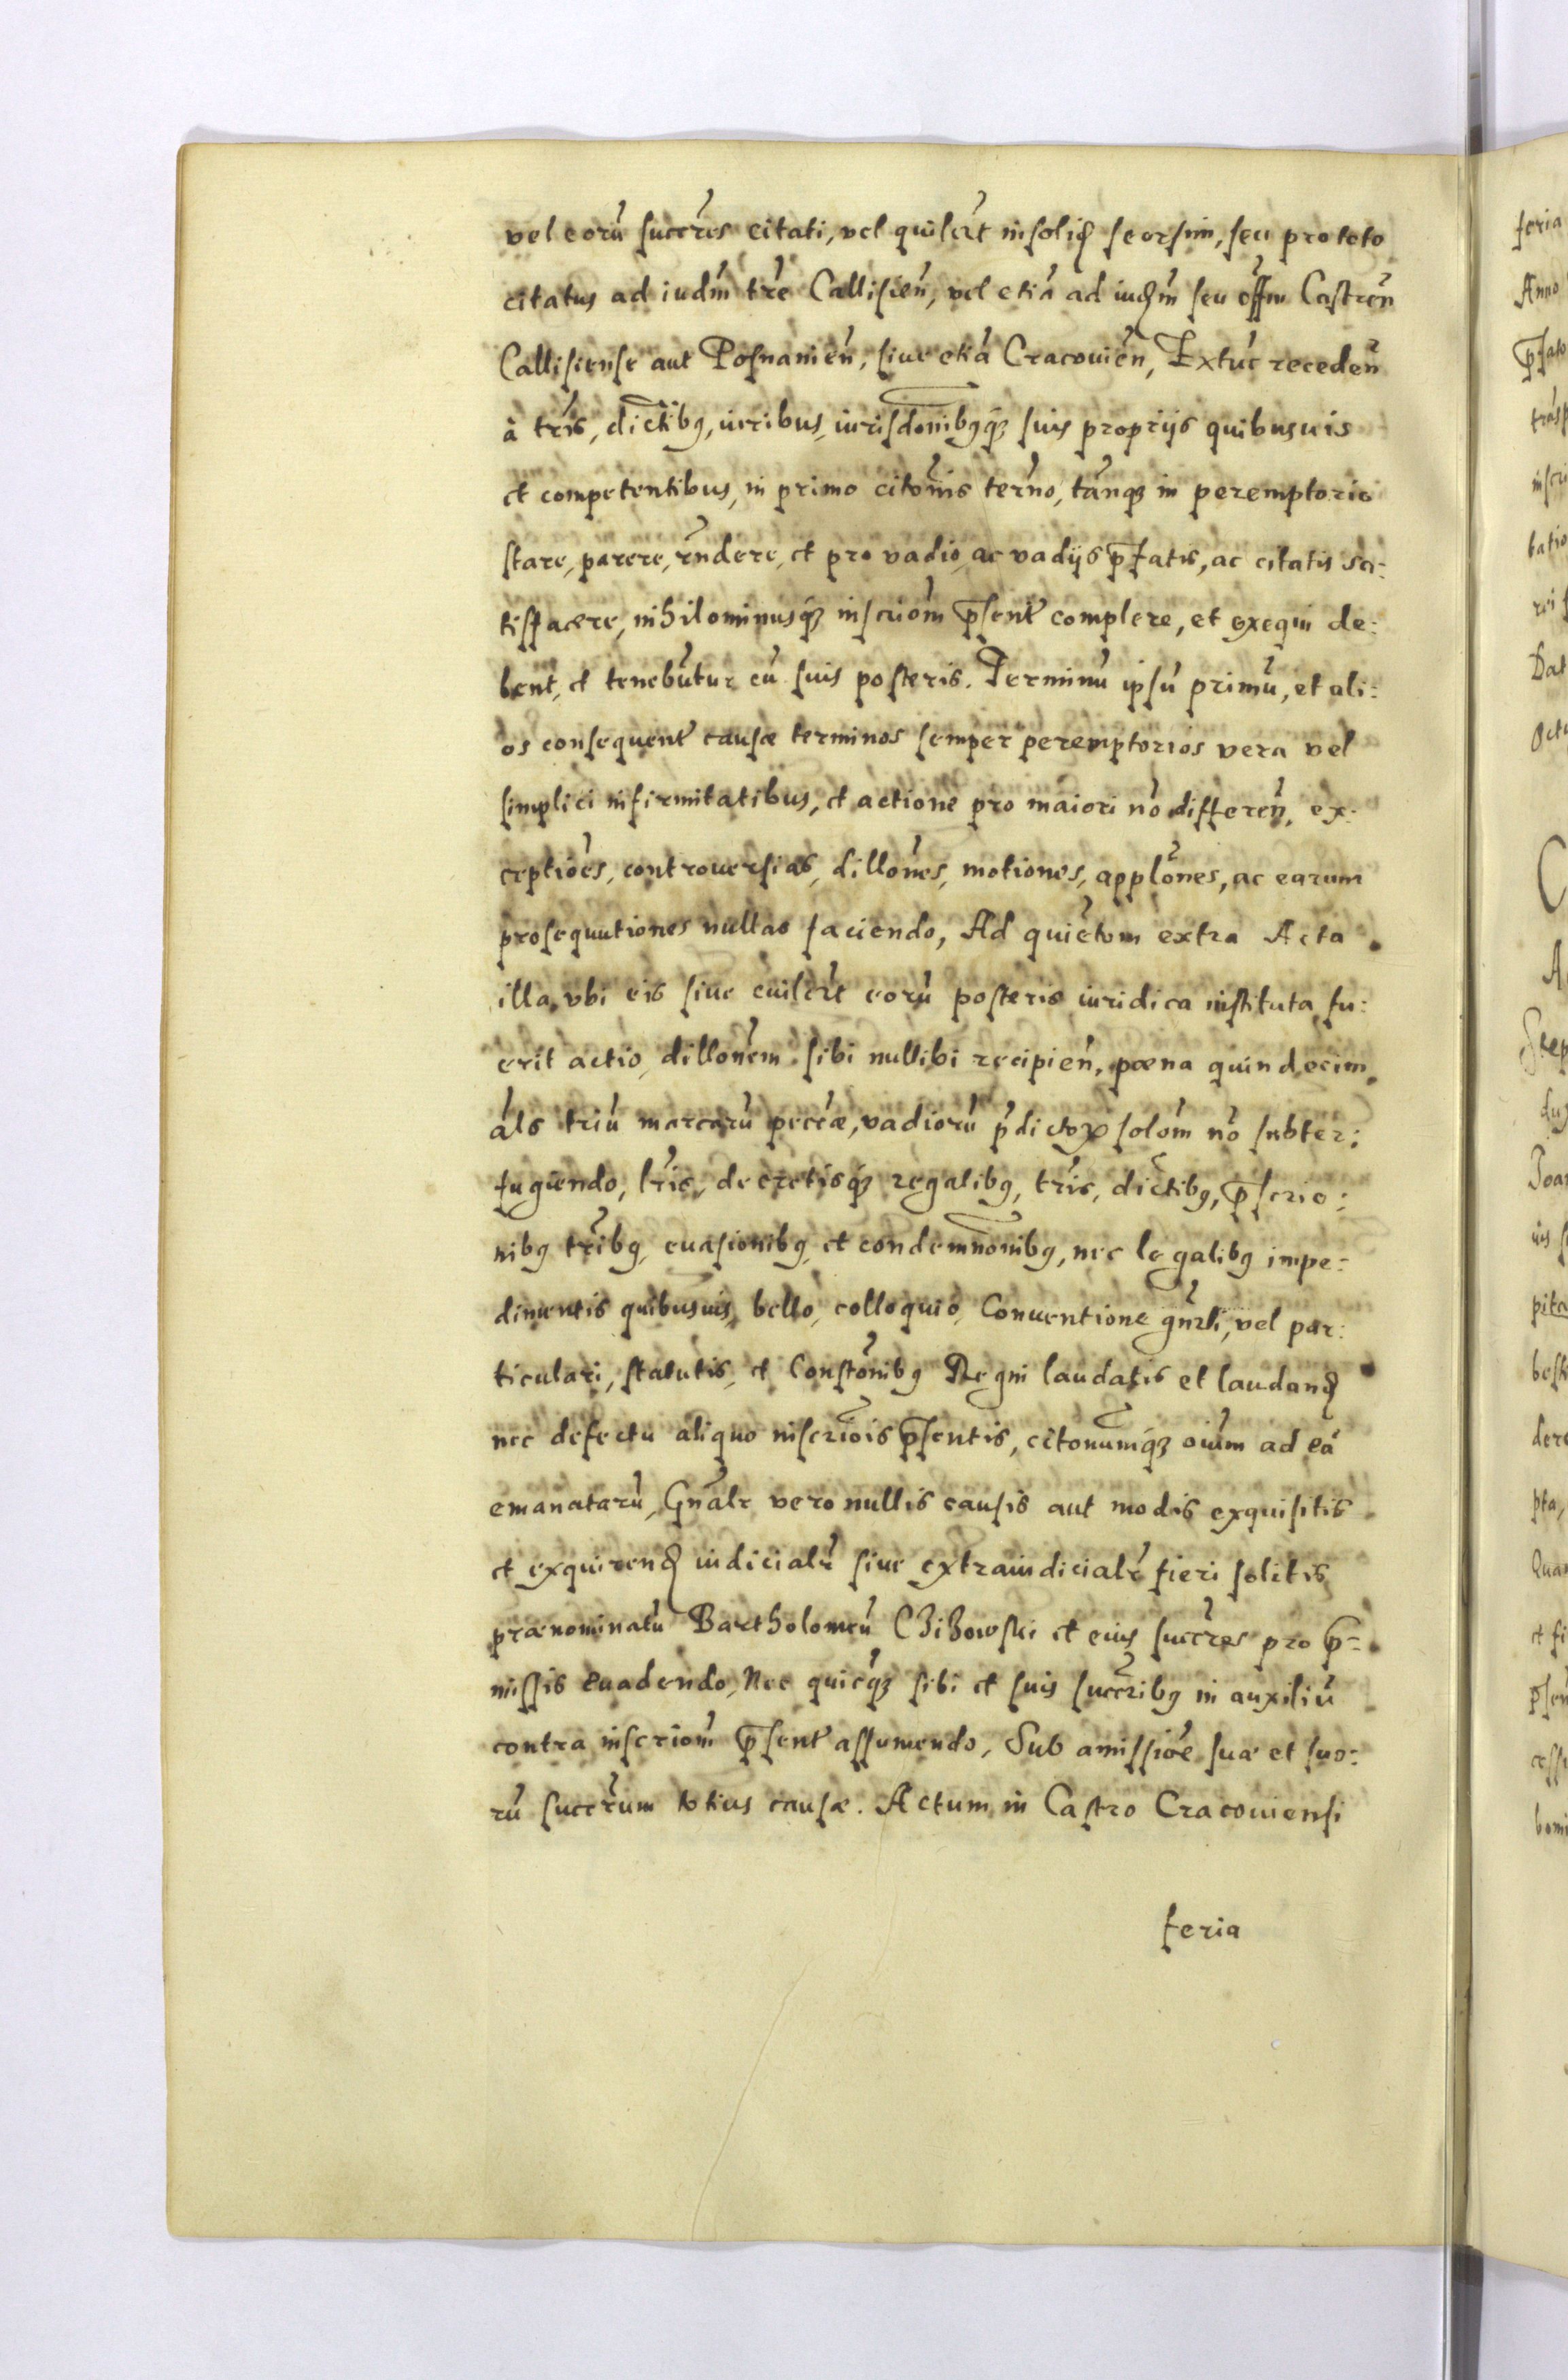 vel eorũ succr̃es citati, vel quilib̃t insolid seorsim, seu pro toto
citatus ad iudm̃ tr̃e Callisien̄, vel etiã ad iudm̃ seu off̃m Castren̄
Calisiense aut Posnanien̄, siue etiã Cracouien̄, Extũc receden̄
à tr̃is, dictibꝯ, iuribus, iurisdõnibꝯqꝫ suis proprijs quibusuis
et competentibus, in primo citõnis term̃o, tãnqꝫ in peremptorio
stare, parere, rñdere, et pro vadio, ac vadijs p̃fatis, ac citatis sa:
tisfacere, nihilominusqꝫ inscriõm p̃sent̃ complere, et exequi de:
bent, et tenebũtur cũ suis posteris. Terminũ ipsũ primũ, et ali:
os consequent̃ causæ terminos semper peremptorios vera vel
simplici infirmitatibus, et actione pro maiori nõ differen̄, ex:
ceptiões, controuersias, dillões, motiones, applões, ac earum
prosequutiones nullas faciendo, Ad quiet̃om extra Acta
illa, vbi eis siue cuilib̃t eorũ posteris iuridica instituta fu:
erit actio, dillõnem sibi nullibi recipien̄, pæna quindecim,
ãls triũ marcarũ peccæ, vadiorũ p̃dictoꝝ solõm nõ subter:
fugiendo, lr̃is, decretisqꝫ regalibꝯ, tr̃is, dictibꝯ, p̃scrio:
nibꝯ tr̃ibꝯ, euasionibꝯ et condemnõnibꝯ, nec legalibꝯ impe:
dimentis quibusuis, bello, colloquio, Conuentione gñrli, vel par:
ticulari, statutis, et Constõnibꝯ Regni laudatis et laudand
nec defectu aliquo inscriõis p̃sentis, citõnumqꝫ oĩum ad eã
emanatarũ, Gñalr vero nullis causis aut modis exquisitis
et exquirend iudicialr̃ siue extraiudicialr̃ fieri solitis
prænominatũ Bartholomeũ Chibowski et eius succr̃es pro p̃=
missis euadendo, Nec quicqꝫ sibi et suis succr̃ibꝯ in auxiliũ
contra inscriõm p̃sent̃ assumendo, Sub amissiõe suæ et suo:
rũ succr̃um totius causæ. Actum in Castro Cracouiensi
feria